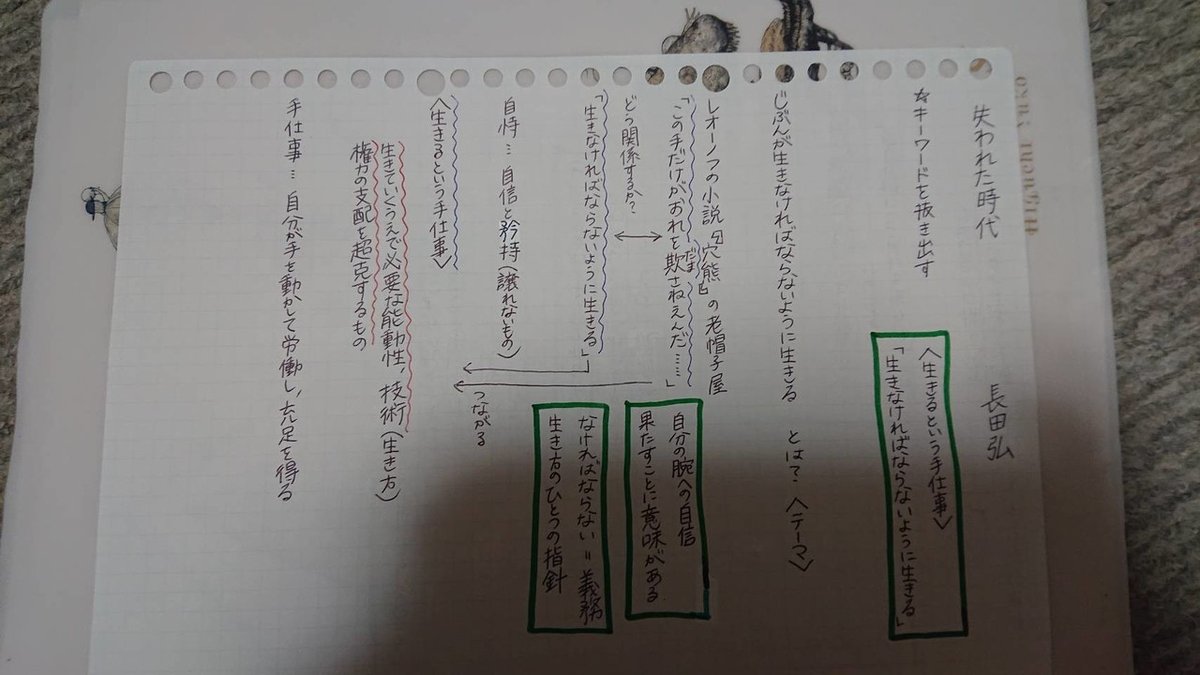 失われた時代　長田弘
☆キーワードを抜き出す
〈生きるという手仕事〉
「生きなければならないように生きる」
じぶんが生きなければならないように生きる　とは？〈テーマ〉
レオーノフの小説『穴熊』の老帽子屋
「この手だけがおれを欺さねえんだ……」
だま
自分の腕への自信
果たすことに意味がある
どう関係するか？
「生きなければならないように生きる」
なければならない＝義務
生き方のひとつの指針
自恃…自信と矜持（譲れないもの）
つながる
〈生きるという手仕事〉
生きていくうえで必要な能動性、技術（生き方）
権力の支配を超克するもの
手仕事…自分が手を動かして労働し、充足を得る